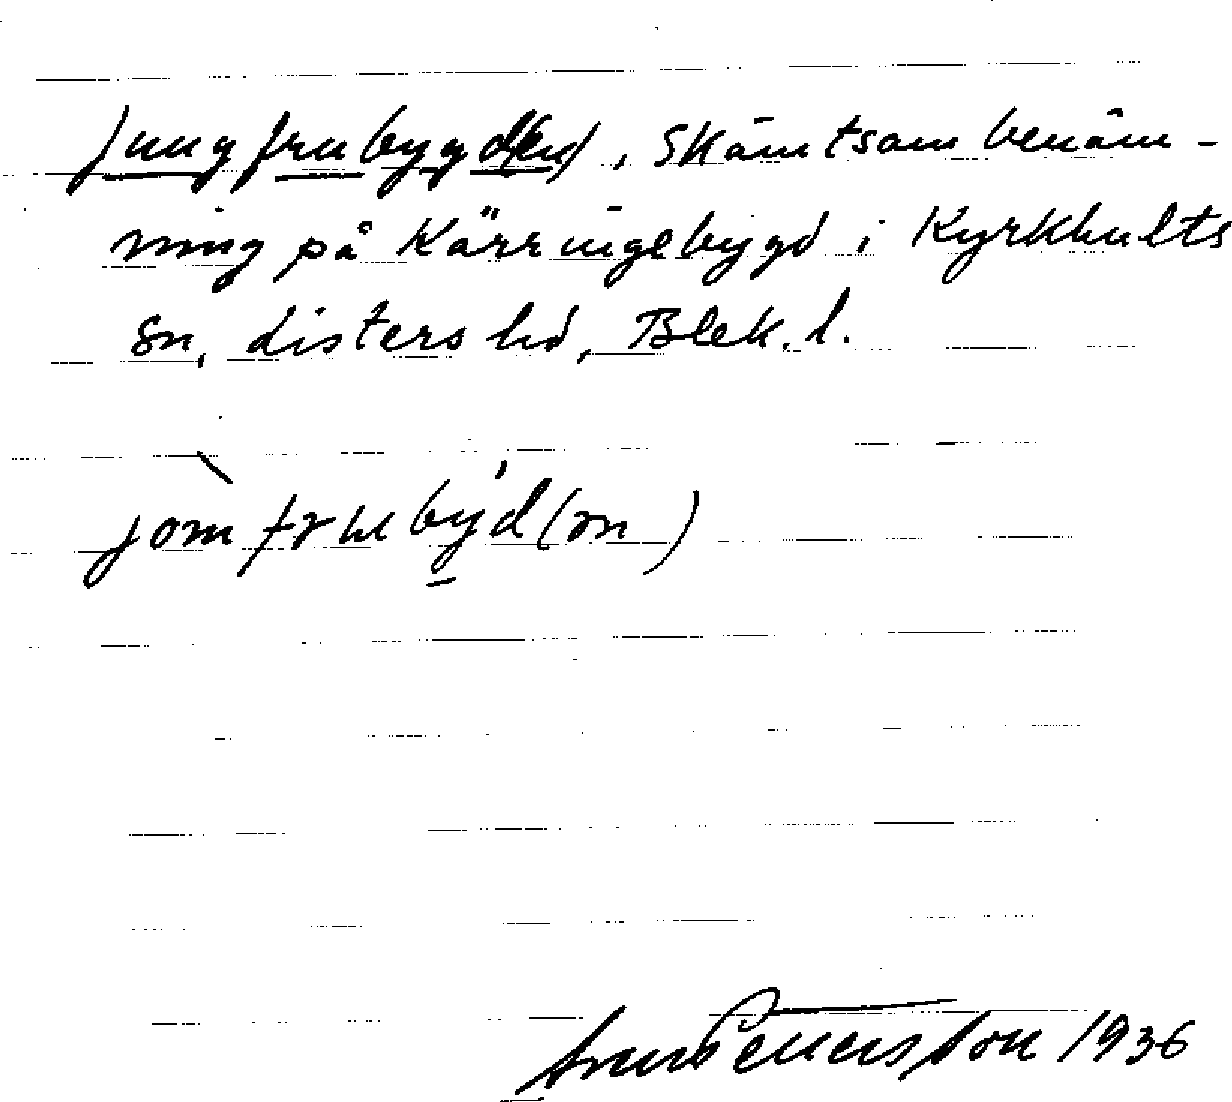 Jungfrubygd(en), skämtsam benäm-
ning på Käringebygd i Kyrkhults
sn, Listers hd, Blek. l.
jòmfrubýd(ən)
Pettersson 1936